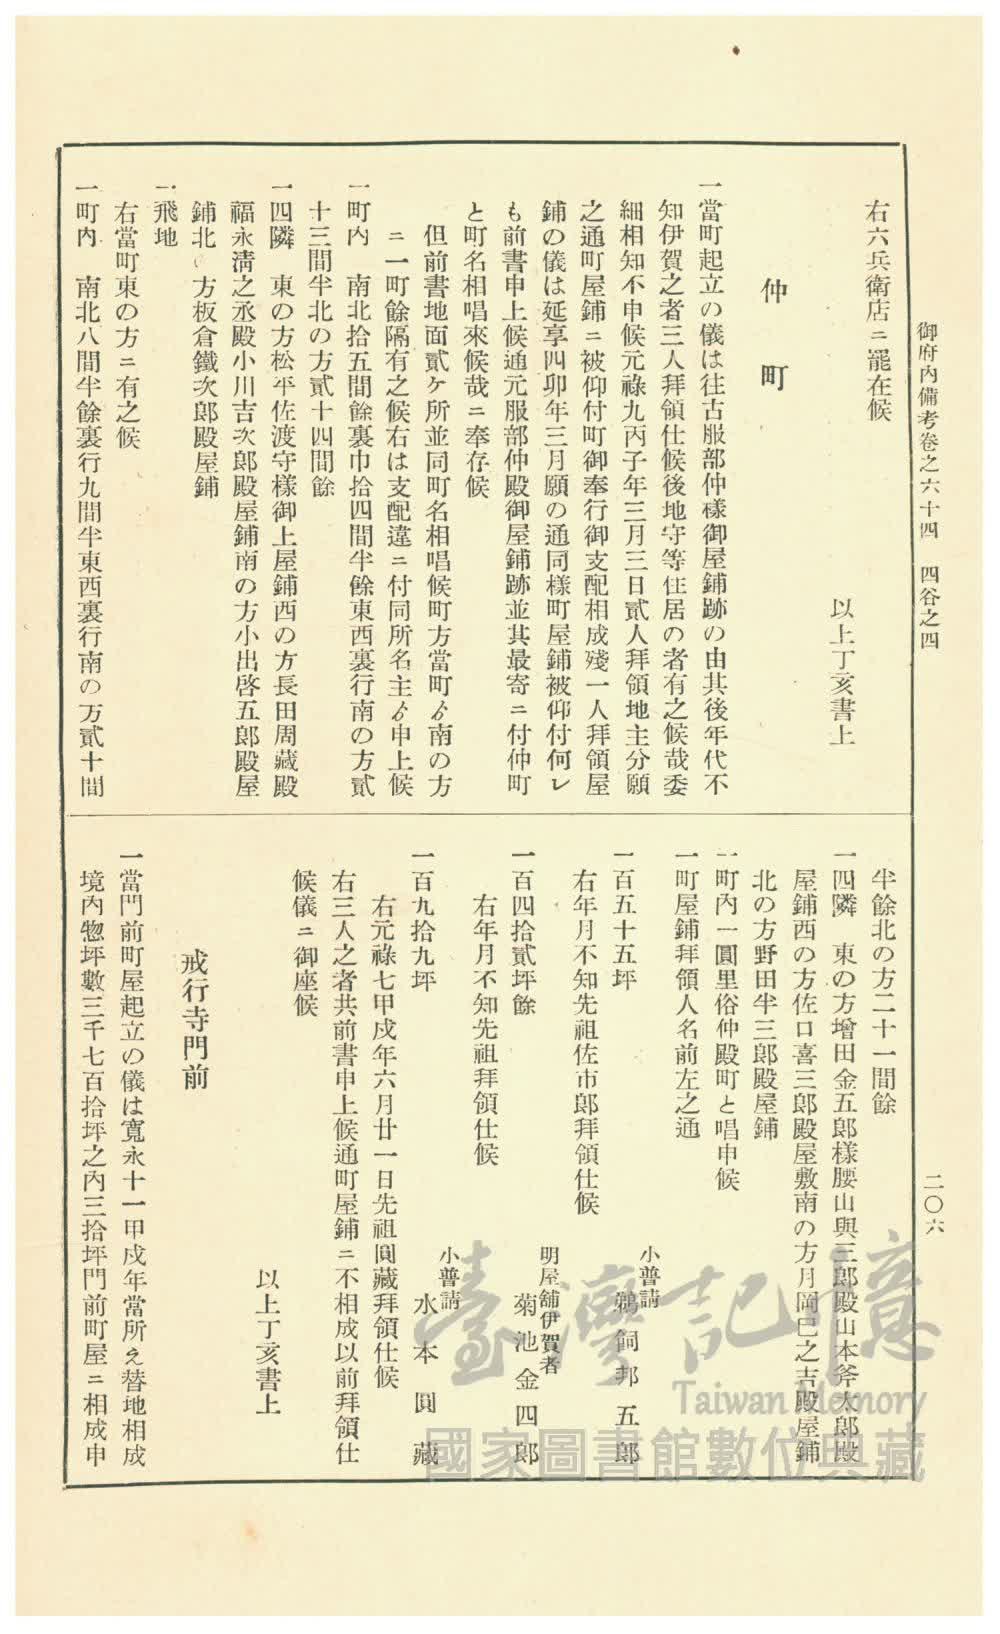 御府內備考卷之六十四　四谷之四
二〇六
右六兵衛店ニ罷在候
以上丁亥書上
仲町
一當町起立の儀は往古服部仲樣御屋鋪跡の由其後年代不
知伊賀之者三人拜領仕候後地守等住居の者有之候哉委
細相知不申候元祿九丙子年三月三日貳人拜領地主分願
之通町屋鋪ニ被仰付町御奉行御支配相成殘一人拜領屋
鋪の儀は延享四卯年三月願の通同樣町屋鋪被仰付何レ
も前書申上候通元服部仲殿御屋鋪跡並其最寄ニ付仲町
と町名相唱來候哉ニ奉存候
但前書地面貳ケ所並同町名相唱候町方當町ゟ南の方
ニ一町餘隔有之候右は支配違ニ付同所名主ゟ申上候
一町內　南北拾五間餘裏巾拾四間半餘東西裏行南の方貳
十三間半北の方貳十四間餘
一四隣　東の方松平佐渡守樣御上屋鋪西の方長田周藏殿
福永淸之丞殿小川吉次郎殿屋鋪南の方小出啓五郎殿屋
鋪北の方板倉鐵次郎殿屋鋪
一飛地
右當町東の方ニ有之候
一町內　南北八間半餘裏行九間半東西裏行南の方貳十間
半餘北の方二十一間餘
一四隣　東の方增田金五郎樣腰山與三郎殿山本斧太郎殿
屋鋪西の方佐口喜三郎殿屋敷南の方月岡巳之吉殿屋鋪
北の方野田半三郎殿屋鋪
一町內一圓里俗仲殿町と唱申候
一町屋鋪拜領人名前左之通
小普請
一百五十五坪　鵜飼邦五郎
右年月不知先祖佐市郎拜領仕候
明屋舖伊賀者
一百四拾貳坪餘　菊池金四郎
右年月不知先祖拜領仕候
小普請
一百九拾九坪　水本圓藏
右元祿七甲戌年六月廿一日先祖圓藏拜領仕候
右三人之者共前書申上候通町屋鋪ニ不相成以前拜領仕
候儀ニ御座候
以上丁亥書上
戒行寺門前
一當門前町屋起立の儀は寬永十一甲戌年當所え替地相成
境內惣坪數三千七百拾坪之內三拾坪門前町屋ニ相成申
臺灣記憶
Taiwan Memory
國家圖書館數位典藏